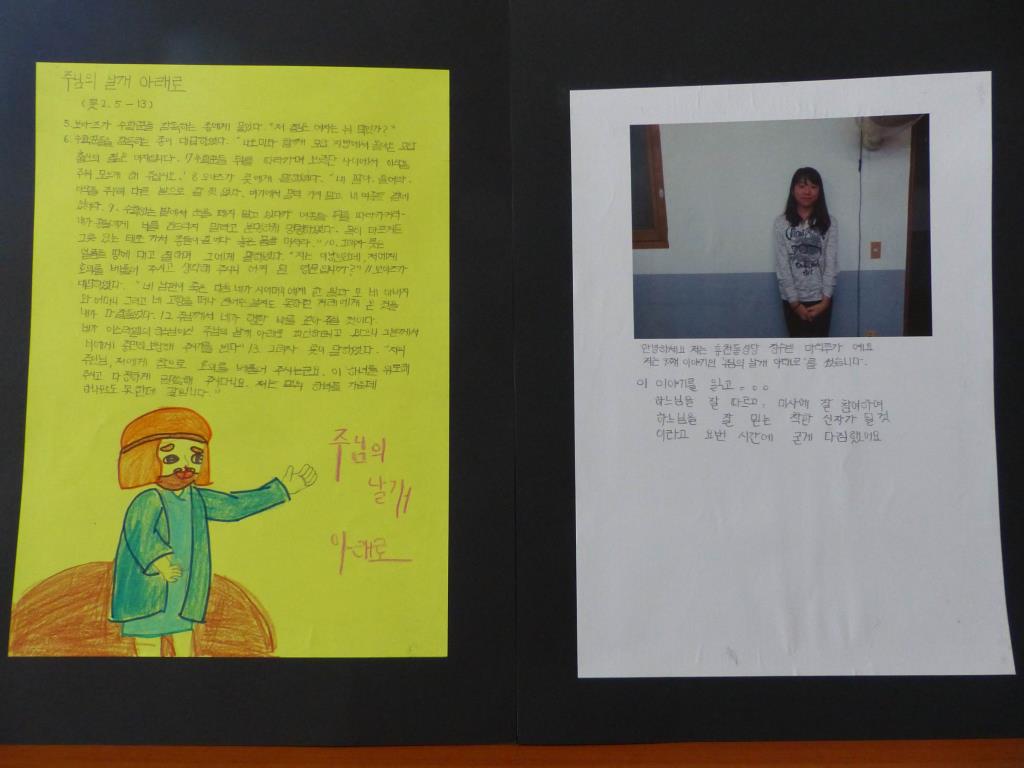 주님의 날개 아래로
(룻2. 5-13)
5. 보아즈가 수확꾼들을 감독하는 종에게 물었다. "저 젊은 여자는 뉘 댁인가?"
6. 수확꾼들을 감독하는 종이 대답하였다. "나오미와 함께 모압 지방에서 돌아온 모압
출신의 젊은 여자입니다. 7. 수확꾼들 뒤를 따라가며 보릿단 사이에서 이삭을
주워 모으게 해 주십시오.' 8. 보아즈가 룻에게 말하였다. "내 딸아, 들어라.
이삭을 주우러 다른 밭으로 갈 것 없다. 여기에서 멀리 가지 말고 내 여종들 곁에
있어라. 9. 수확하는 밭에서 눈을 떼지 말고 있다가 여종들 뒤를 따라가거라.
내가 종들에게 너를 건드리지 말라고 분명하게 명령하였다. 목이 마르거든
그릇 있는 데로 가서 종들이 길어다 놓은 물을 마셔라." 10. 그러자 룻은
얼굴을 땅에 대고 절하며 그에게 말하였다. "저는 이방인인데, 저에게
호의를 베풀어 주시고 생각해 주시니 어찌 된 영문입니까?" 11. 보아즈가
대답하였다. "네 남편이 죽은 다음 네가 시어머니에게 한 일과 또 네 아버지
와 어머니 그리고 네 고향을 떠나 전에는 알지도 못하던 겨레에게 온 것을
내가 다 들었다. 12. 주님께서 네가 행한 바를 갚아 주실 것이다.
네가 이스라엘의 하느님이신 주님의 날개 아래로 피신하려고 왔으니 그분께서
너에게 충만히 보상해 주시기를 빈다" 13. 그러자 룻이 말하였다. "저의
주인님, 저에게 참으로 호의를 베풀어 주시는군요. 이 하녀를 위로해
주시고 다정하게 말씀해 주시다니요. 저는 당신의 하녀들 가운데
하나만도 못한데 말입니다."
주님의
날개
아래로
안녕하세요 저는 홍천동성당 장수반 예요
저는 3째 이야기인 '주님의 날개 아래로'를 썼습니다.
이 이야기를 읽고...
하느님을 잘 따르고, 미사에 잘 참여하여
하느님을 잘 믿는 착한 신자가 될 것
이라고 요번 시간에 굳게 다짐했어요